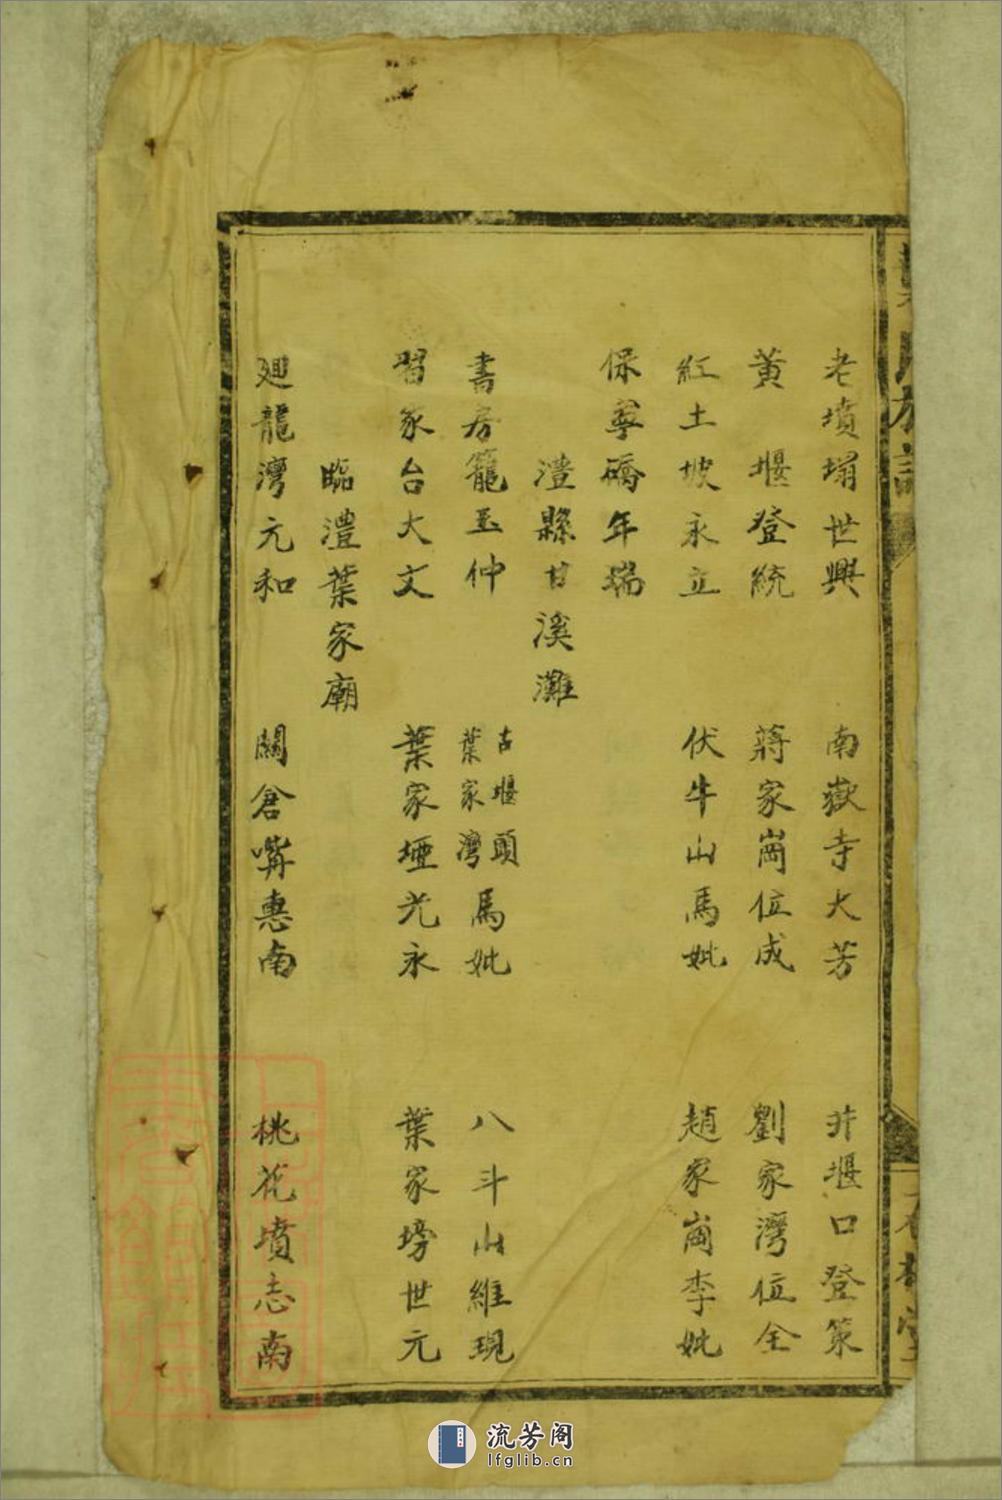 老墳塌世興　南嶽寺大芳　井堰口登策
黃堰登統　蔣家崗位成　劉家灣位全
紅土坡永立　伏牛山馬妣　趙家崗李妣
保寧磽年瑞
澧縣甘溪灘
書房籠玉仲　古堰頭葉家灣馬妣　八斗山維現
習家台大文　葉家埡光永　葉家塝世元
臨澧葉家廟
廻龍灣元和　關倉嘴惠南　桃花墳志南
流芳阁
lfglib.cn